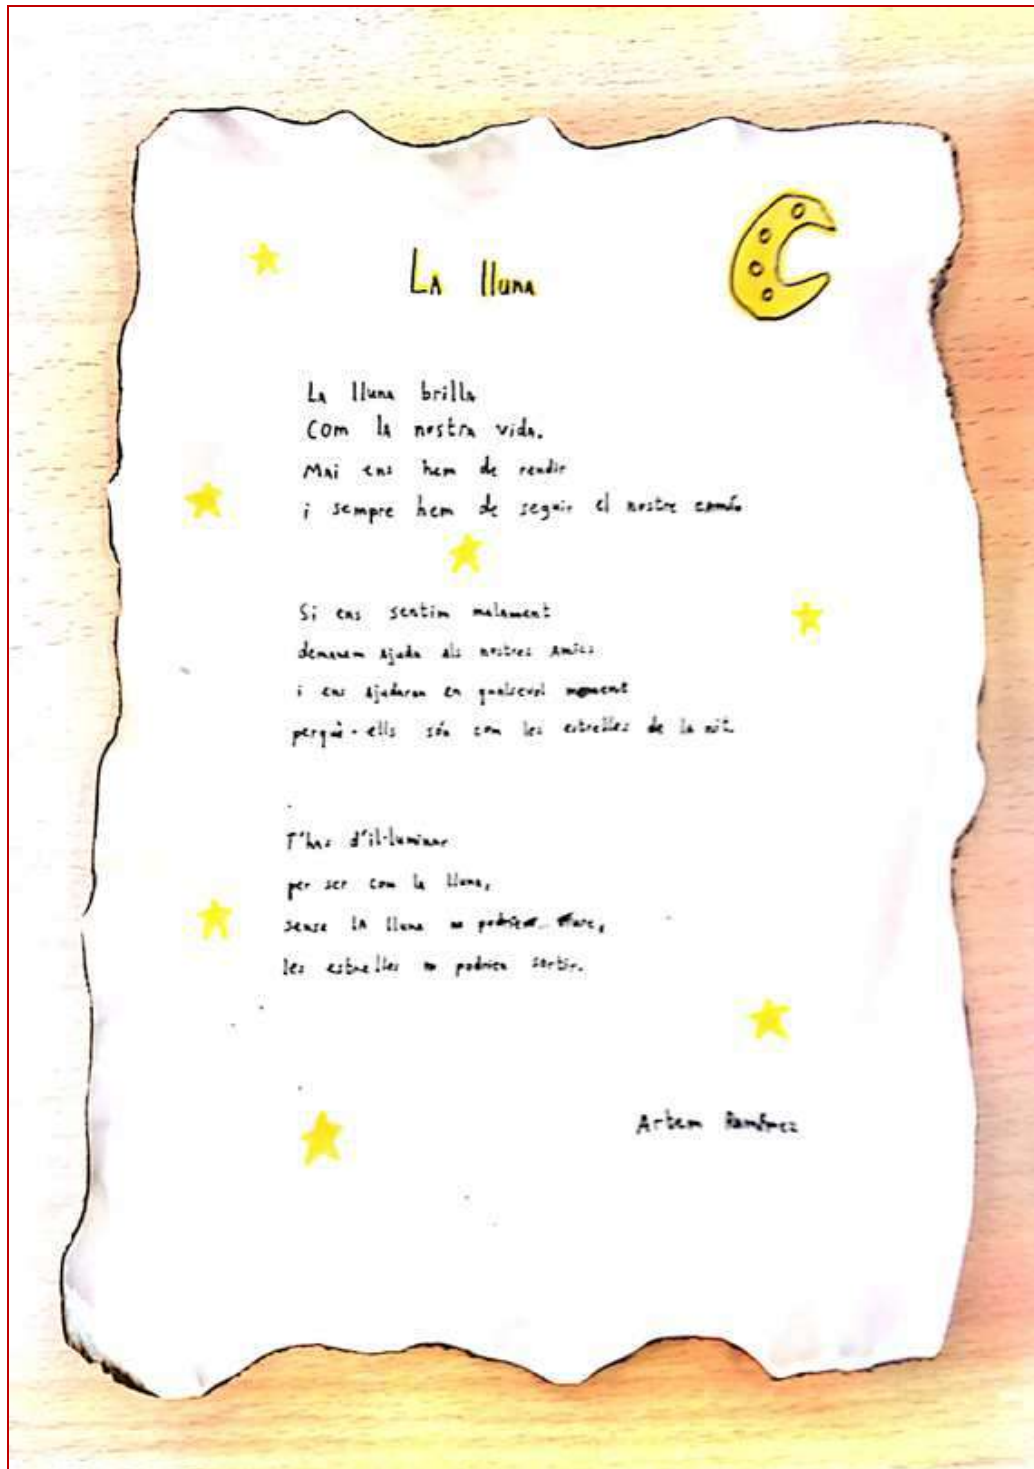 La lluna
La lluna brilla
Com la nostra vida.
Mai ens hem de rendir
i sempre hem de seguir el nostre camí.
Si ens sentim malament
demanem ajuda als nostres amics
i ens ajudaran en qualsevol moment
perquè ells són com les estrelles de la nit.
T'has d'il·luminar
per ser com la lluna,
sense la lluna no
les estrelles no podrien sortir.
Artem Ramírez